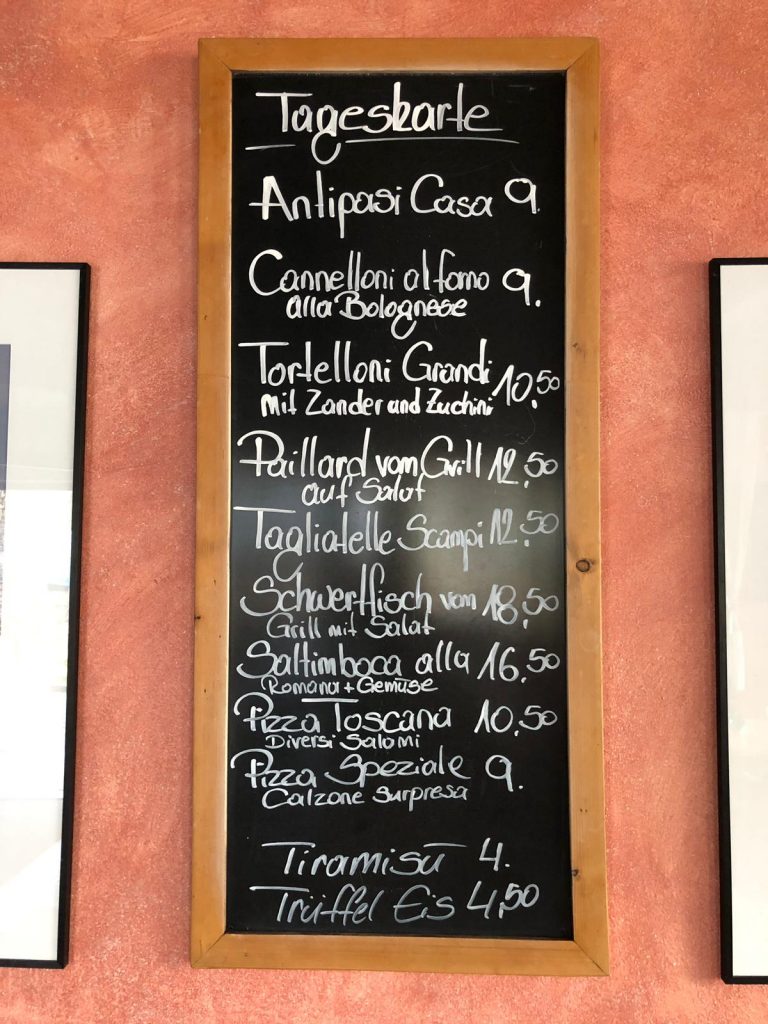 Tageskarte
Antipasi Casa 9.
Cannelloni al forno 9.
alla Bolognese
Tortelloni Grandi 10,50
mit Zander und Zuchini
Paillard vom Grill 12,50
auf Salat
Tagliatelle Scampi 12,50
Schwertfisch vom 18,50
Grill mit Salat
Saltimboca alla 16,50
Romana + Gemüse
Pizza Toscana 10,50
Diversi Salami
Pizza Speziale 9.
Calzone Surpresa
Tiramisu 4.
Trüffel Eis 4,50